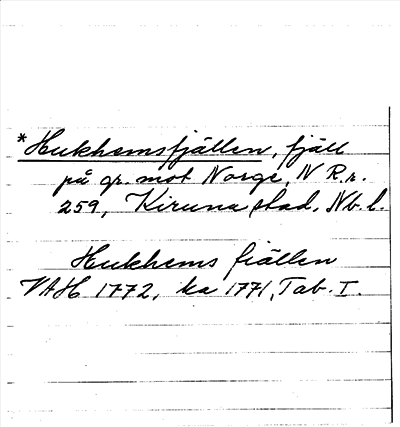 *Hukhemsfjällen, fjäll
på gr. mot Norge, N R.r.
259, Kiruna stad, Nb. l.
Hukhems fiällen
VAH 1772, ka 1771, Tab. I.